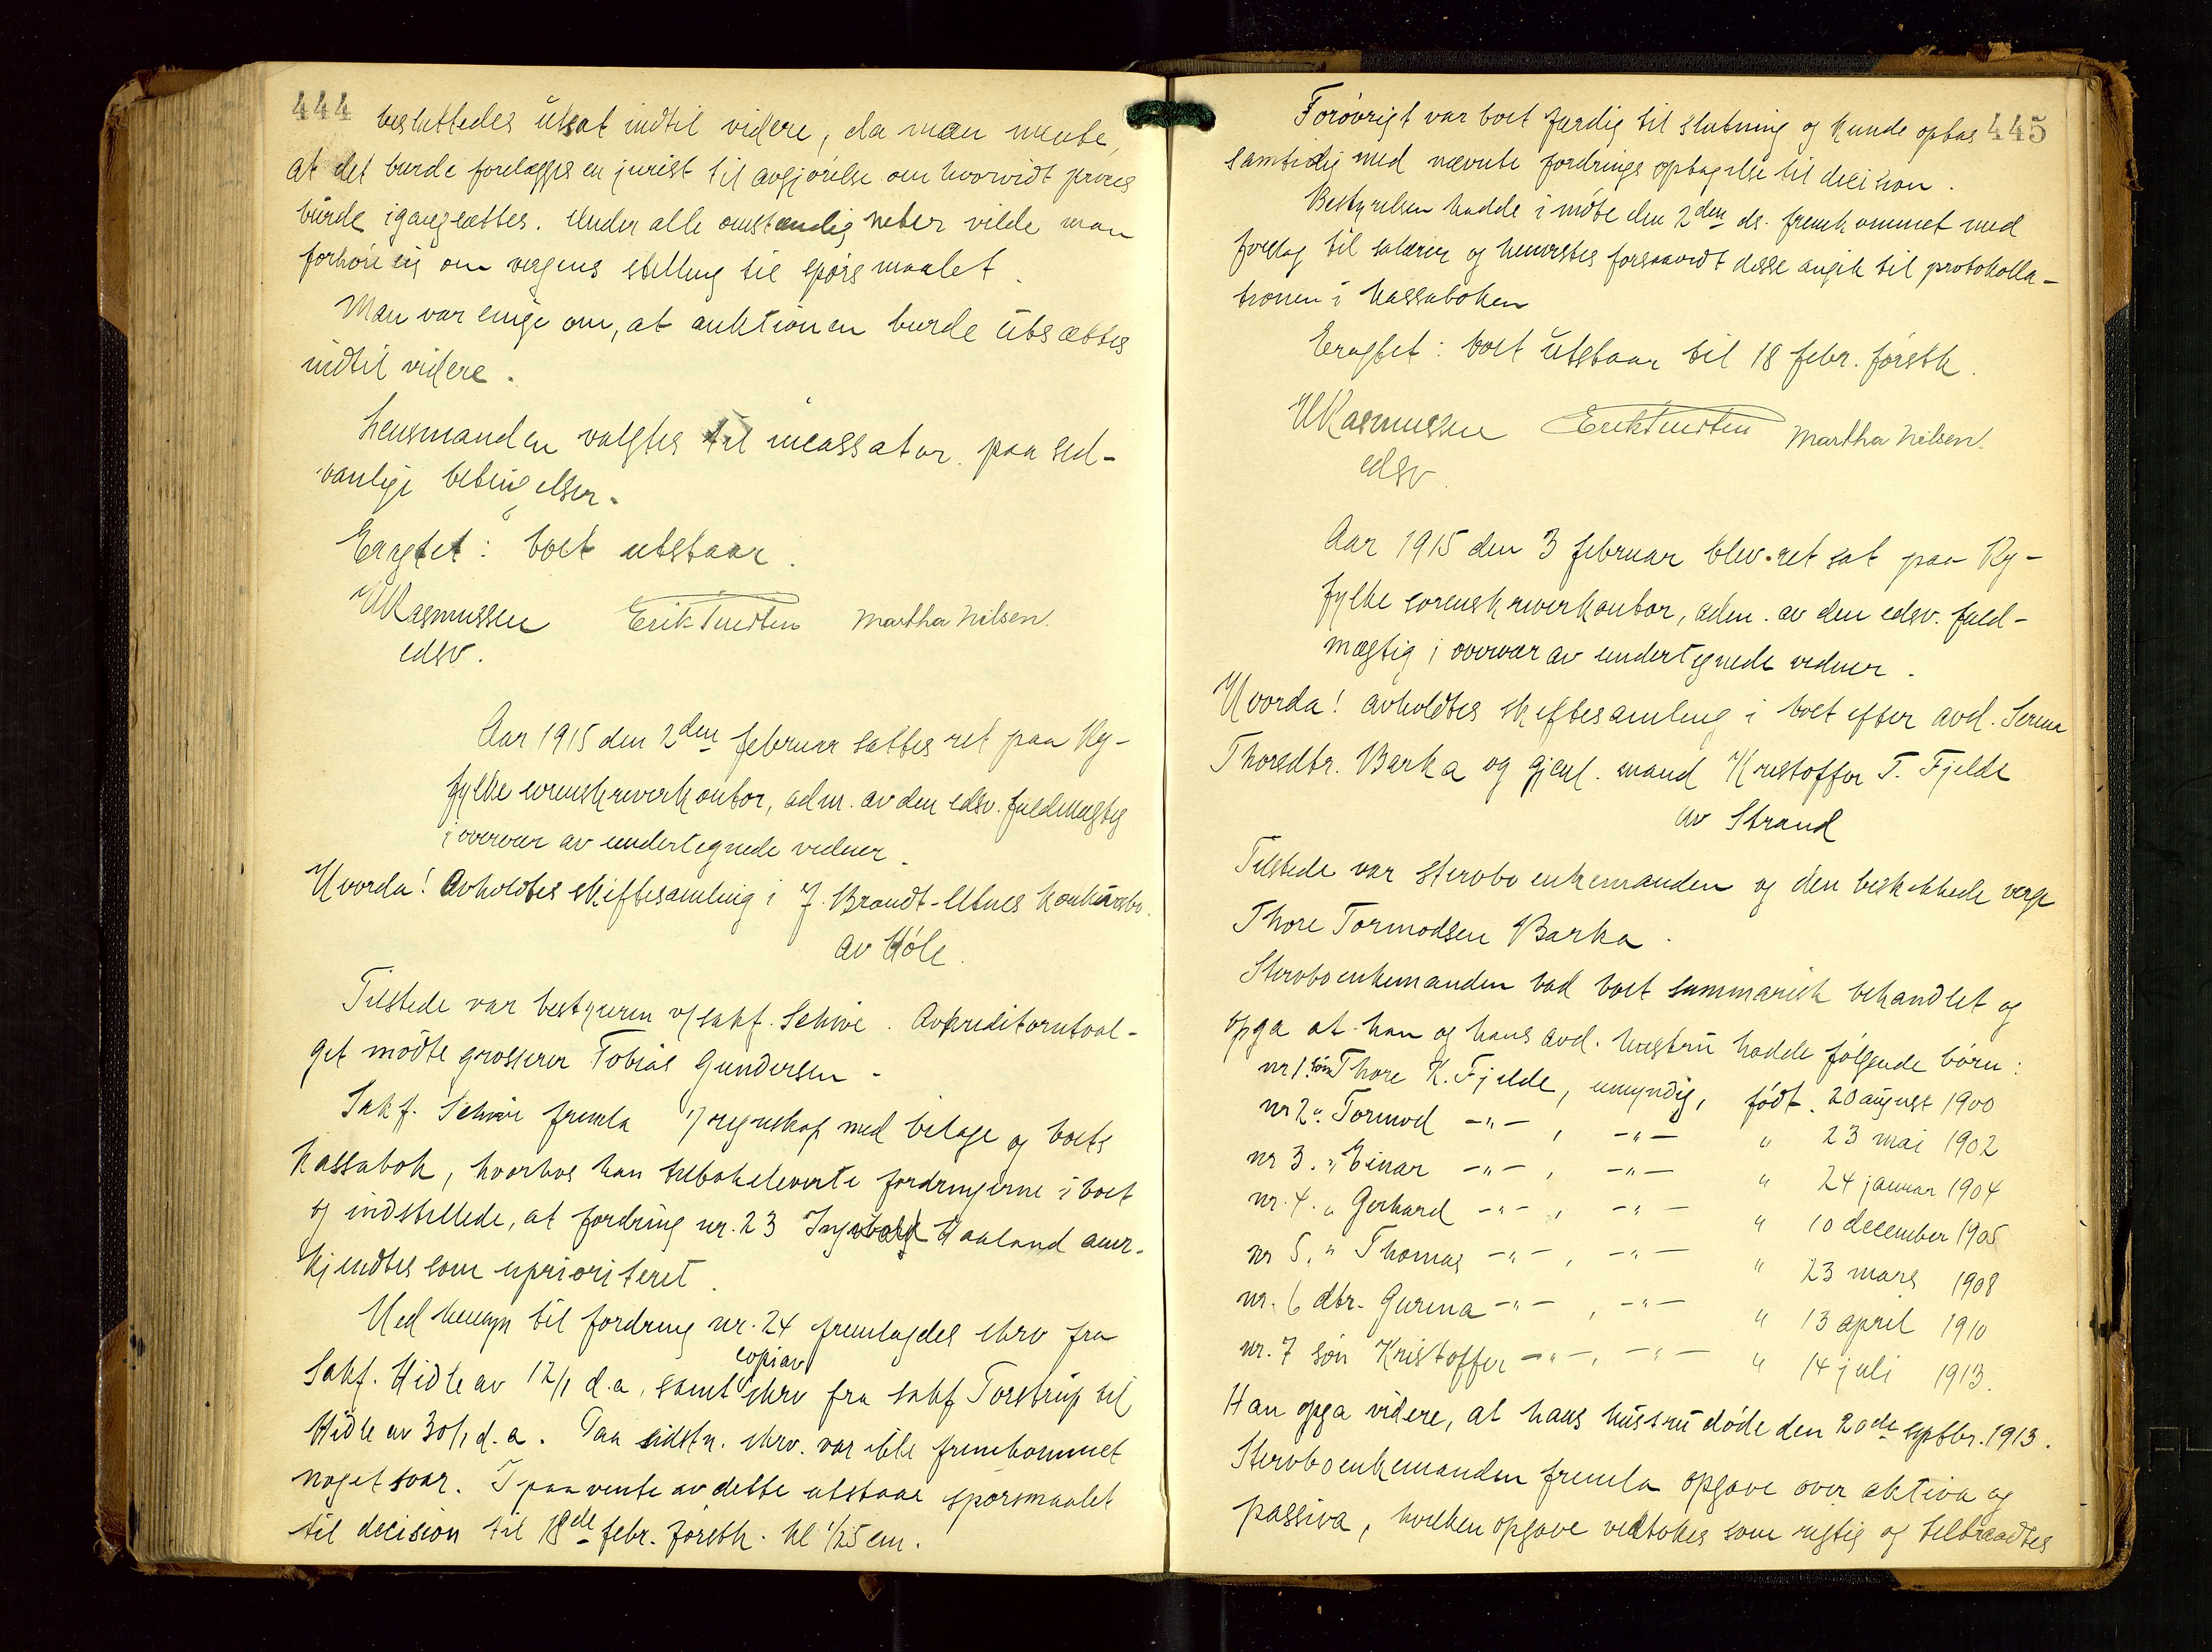 444
besluttedes utsat indtil videre, da man mente,
at det burde forelægges en jurist til avgjørelse om hvorvidt proces
burde igangsættes. Under alle omstændigheter vilde man
forhøre sig om vergens stilling til spørsmaalet.
Man var enige om, at auktionen burde utsættes
indtil videre.
Lensmanden valgtes til incassator paa sed-
vanlige betingelser.
Eragtet: boet utstaar.
URasmussen Erik Tuedten Martha Nilsen.
edsv.
Aar 1915 den 2den februar sattes ret paa Ry-
fylke sorenskriverkontor, adm. av den edsv. fuldmægtig
i overvær av undertegnede vidner.
Hvorda! Avholdtes skiftesamling i J. Brandt-Utnes konkursbo.
av Høle.
Tilstede var bestyreren v/ sakf. Schive. Av kreditorutval-
get møtte grosserer Tobias Gundersen.
Sakf. Schive fremla 1/ regnskap med bilage og boets
kassabok, hvorhos han tilbakeleverte fordringerne i boet
og indstillede, at fordring nr. 23 Ingvald Haaland aner-
kjendtes som uprioriteret.
Med hensyn til fordring nr. 24 fremlagdes skrv fra
copi av
sakf. Hidle av 12/1 d.a, samt skrv fra sakf Torstrup til
Hidle av 30/1 d.a. Paa sidstn. skrv. var ikke fremkommet
noget svar. I paavente av dette utstaar spørsmaalet
til decision til 18de febr. førstk. kl 1/2 5 em.
445
Forøvrigt var boet færdig til slutning og kunde optas
samtidig med nævnte fordrings optagelse til decision.
Bestyrelsen hadde i møte den 2den ds. fremkommet med
forslag til salærer og henvistes forsaavidt disse angik til protokolla-
tionen i kassaboken
Eragtet: boet utstaar til 18 febr. førstk.
URasmussen Erik Tuedten Martha Nilsen.
edsv.
Aar 1915 den 3 februar blev ret sat paa Ry-
fylke sorenskriverkontor, adm. av den edsv. fuld-
mægtig i overvær av undertegnede vidner.
Hvorda! avholdtes skiftesamling i boet efter avd. Serina
Thorsdtr. Barka og gjenl. mand Kristoffer T. Fjelde
av Strand
Tilstede var stervboenkemanden og den beskikkede verge
Thore Tormodsen Barka.
Stervboenkemanden bad boet summarisk behandlet og
opga at han og hans avd. hustru hadde følgende børn:
nr 1. søn Thore K. Fjelde, umyndig, født. 20 august 1900
nr 2. " Tormod -"-, -"- " 23 mai 1902
nr 3. " Einar -"-, -"- " 24 januar 1904
nr. 4. " Gerhard -"-, -"- " 10 december 1905
nr 5. " Thomas -"-, -"- " 23 mars 1908
nr. 6 dtr. Gurina -"-, -"- " 13 april 1910
nr. 7 søn Kristoffer -"-, -"- " 14 juli 1913.
Han opga videre, at hans hustru døde den 20de septbr. 1913.
Stervboenkemanden fremla opgave over aktiva og
passiva, hvilken opgave vedtokes som rigtig og tiltraadtes